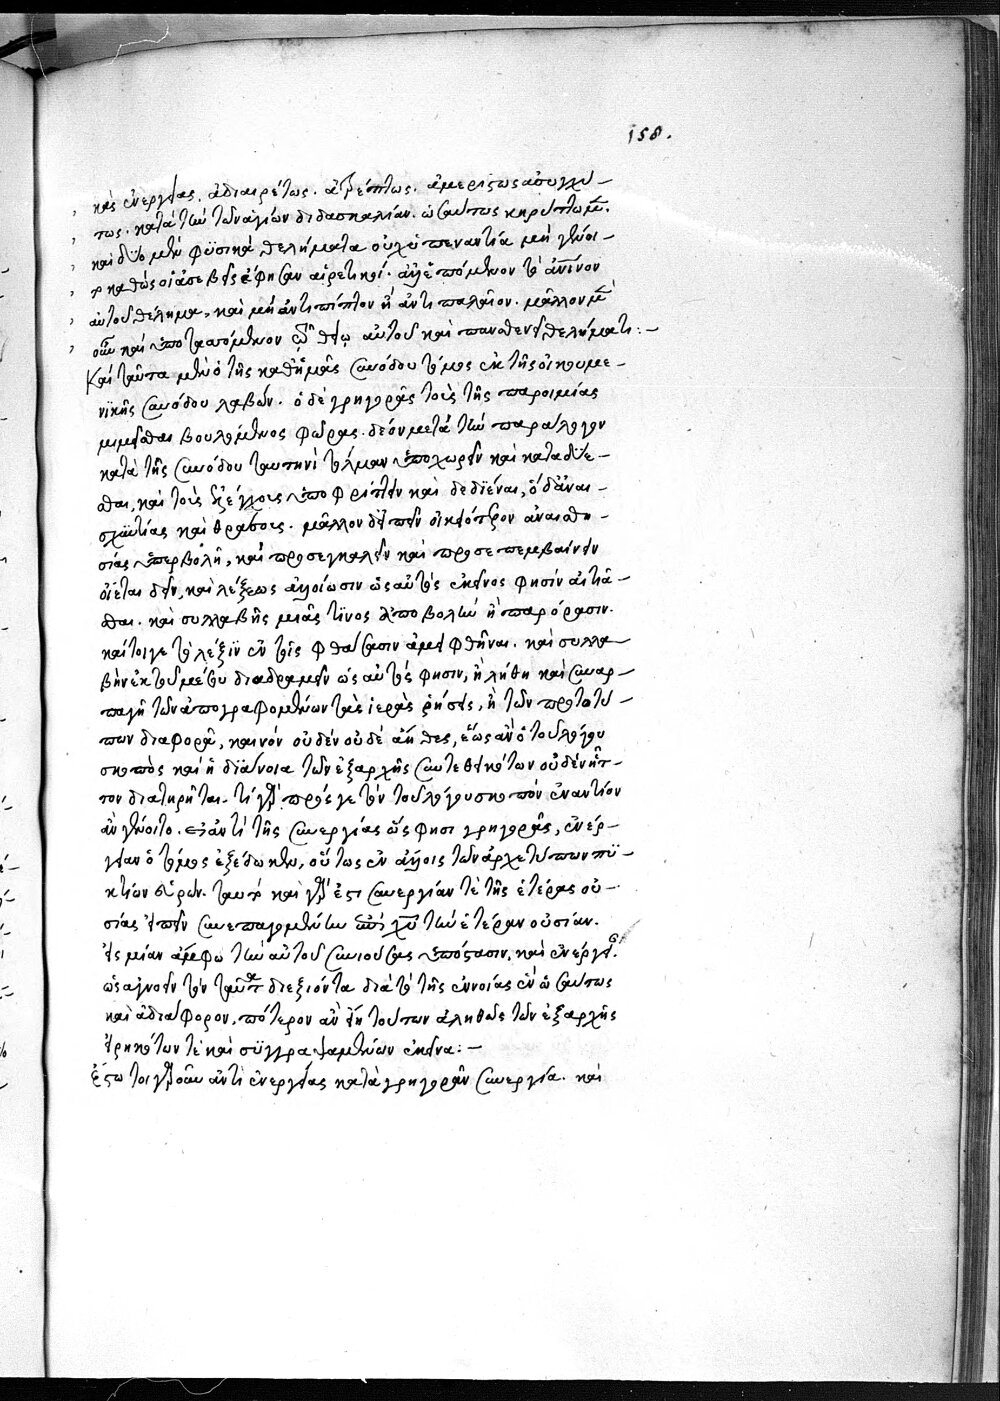 158.
κὰς ἐνεργείας, ἀδιαιρέτως. ἀτρέπτως. ἀμερίστως ἀσυγχύ-
τως. κατὰ τὴν τῶν ἁγίων διδασκαλίαν. ὡσαύτως κηρύττομεν.
καὶ δύο μὲν φυσικὰ θελήματα οὐχ ὑπεναντία μὴ γένοι-
το καθὼς οἱ ἀσεβεῖς ἔφησαν αἱρετικοί. ἀλλ' ἑπόμενον τὸ ἀνινον
αὐτοῦ θέλημα, καὶ μὴ ἀντιπίπτον ἢ ἀντιπαλαῖον. μᾶλλον μὲν
οὖν καὶ ὑποτασσόμενον τῷ θείῳ αὐτοῦ καὶ πανσθενεῖ θελήματι:—
Καὶ ταῦτα μὲν ὁ τῆς καθ' ἡμᾶς συνόδου τόμος ἐκ τῆς οἰκουμε-
νικῆς συνόδου λαβών. ὁ δὲ γρηγορᾶς τοὺς τῆς παροιμίας
μιμεῖσθαι βουλόμενος φῶρας. δέον μετὰ τὴν παράλογον
κατὰ τῆς συνόδου ταυτηνὶ τόλμαν ὑποχωρεῖν καὶ καταδύε-
σθαι, καὶ τοὺς ἐλέγχους ὑποφρίττειν καὶ δεδιέναι, ὁ δ' ἀναι-
σχυντίας καὶ θράσους. μᾶλλον δ' εἰπεῖν οἰκειότερον ἀναισθη-
σίας ὑπερβολῇ, καὶ προσεγκαλεῖν καὶ προσεπεμβαίνειν
οἴεται δεῖν, καὶ λέξεως ἀλλοίωσιν ὡς αὐτὸς ἐκεῖνος φησὶν αἰτιᾶ-
σθαι. καὶ συλλαβῆς μιᾶς τινος ἀποβολὴν ἢ παρόρασιν.
καίτοιγε τὸ λέξιν ἐν τοῖς φθάσασιν ἀμειφθῆναι. καὶ συλλα-
βὴν ἐκ τοῦ μέσου διαδραμεῖν ὡς αὐτός φησιν, ἢ λήθῃ καὶ συναρ-
παγῇ τῶν ἀπογραφομένων τὰς ἱερὰς ῥήσεις, ἢ τῶν πρωτοτύ-
πων διαφορᾷ, καινὸν οὐδὲν οὐδὲ ἀηθες, ἕως ἂν ὁ τοῦ λόγου
σκοπὸς καὶ ἡ διάνοια τῶν ἐξαρχῆς συντεθεικότων οὐδὲν ἧτ-
τον διατηρῆται. τί γὰρ πρός γε τὸν τοῦ λόγου σκοπὸν ἐναντίον
ἂν γένοιτο. εἰ ἀντὶ τῆς συνεργίας ὥς φησι γρηγορᾶς, ἐνέρ-
γειαν ὁ τόμος ἐξέδωκεν, οὕτως ἐν ἄλλοις τῶν ἀρχετύπων πυ-
κτίων εὑρών. ταυτὸ καὶ γάρ ἐστι συνεργίαν τὲ τῆς ἑτέρας οὐ-
σίας εἰπεῖν συνεπαγομένην ἐπὶ χῦ τὴν ἑτέραν οὐσίαν.
εἰς μίαν ἄμφω τὴν αὐτοῦ συνιούσας ὑπόστασιν, καὶ ἐνέργειαν.
ὡς ἀγνοεῖν τὸν ταῦτα διεξιόντα διὰ τὸ τῆς ἐννοίας ἐν ὡσαύτως
καὶ ἀδιάφορον, πότερον ἂν εἴη τούτων ἀληθῶς τῶν ἐξαρχῆς
εἰρηκότων τὲ καὶ συγγραψαμένων ἐκεῖνα:—
Ἔστω τοιγαροῦν ἀντὶ ἐνεργείας κατὰ γρηγορᾶν συνεργία. καὶ